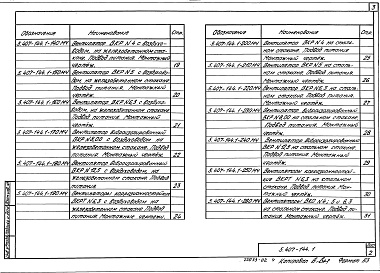 3
Обозначение Наименование Стр.
5.407-144.1-140 МЧ Вентилятор ВКР N4 с воздухо-
водом, на железобетонном ста-
кане. Подвод питания. Монтажный
чертёж. 19
5.407-144.1-150 МЧ Вентилятор ВКР N5 с воздухово-
дом, на железобетонном стакане
Подвод питания. Монтажный
чертёж. 20
5.407-144.1-160 МЧ Вентилятор ВКР N6,3 с воздухо-
водом, на железобетонном стакане
Подвод питания. Монтажный
чертёж. 21
5.407-144.1-170 МЧ Вентилятор виброизолированный
с воздуховодом на
железобетонном стакане. Подвод
питания. Монтажный чертёж. 22
5.407-144.1-180 МЧ Вентилятор виброизолированный
ВКР N12,5 с воздуховодом, на
железобетонном стакане. Подвод
питания. 23
5.407-144.1-190 МЧ Вентиляторы коррозионностойкие
N6,3 с воздуховодом на
железобетонном стакане. Подвод
питания. Монтажные чертежи. 24
Обозначение Наименование Стр.
5.407-144.1-200 МЧ Вентилятор ВКР N4 на сталь-
ном стакане. Подвод питания.
Монтажный чертёж. 25
5.407-144.1-210 МЧ Вентилятор ВКР N5 на сталь-
ном стакане. Подвод питания.
Монтажный чертёж. 26
5.407-144.1-220 МЧ Вентилятор ВКР N6,3 на сталь-
ном стакане. Подвод питания.
Монтажный чертёж. 27
5.407-144.1-230 МЧ Вентилятор виброизолированный
на стальном стакане
Подвод питания. Монтажный
чертёж. 28
5.407-144.1-240 МЧ Вентилятор виброизолированный
ВКР N12,5 на стальном стакане
Подвод питания. Монтажный
чертёж. 29
5.407-144.1-250 МЧ Вентиляторы коррозионностой-
кие N6,3 на стальном
стакане. Подвод питания. Мон-
тажный чертёж. 30
5.407-144.1-260 МЧ Вентиляторы ВКР N4; 5 и 6,3
на стальном стакане. Подвод пи-
тания. Монтажный чертёж. 31
5.407-144.1
Лист
2
Копировал
Формат А3